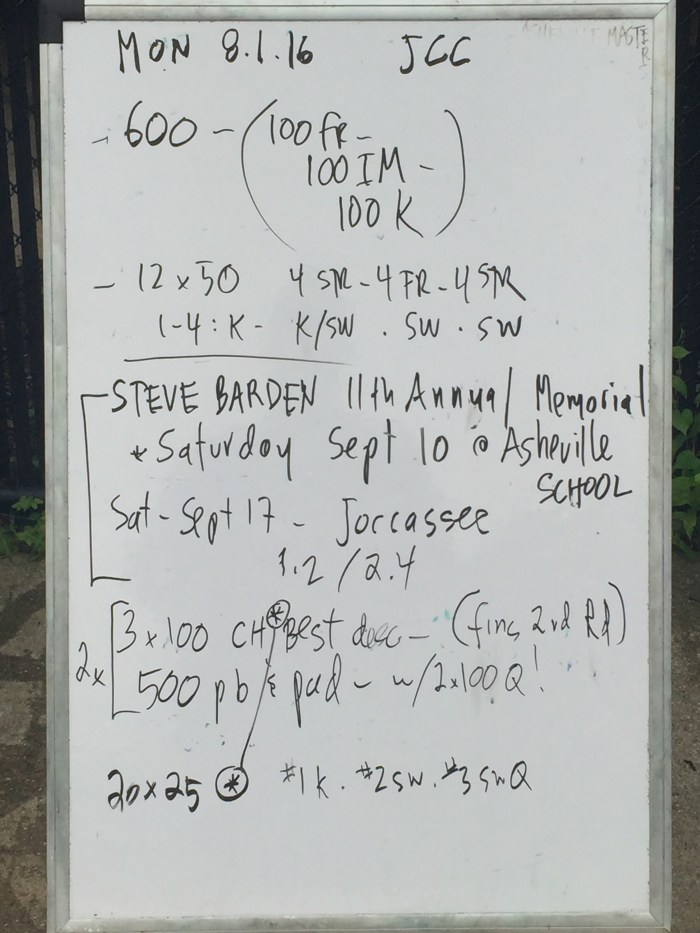 ASHEVILLE MASTERS
MON 8.1.16 JCC
- 600 - (100 FR -
100 IM -
100 K)
- 12 x 50 4 STR - 4 FR - 4 STR
1-4: K - K/SW . SW . SW
STEVE BARDEN 11th Annual Memorial
* Saturday Sept 10 @ Asheville
SCHOOL
Sat - Sept 17 - Jorcassee
1.2 / 2.4
2x [3 x 100 CH * Best desc - (fins 2nd Rd)
500 pb & pad - w/ 2x100 Q!
20 x 25 * #1 K . #2 SW . #3 SW Q